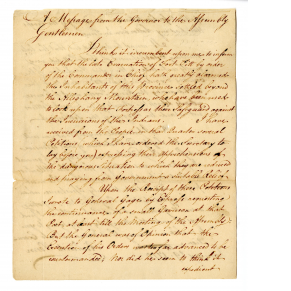 A Message from the Governor to the Assembly
Gentlemen
I think it incumbent upon me to inform
you that the late Evacuation of Fort Pitt by order
of the Commander in Chief, hath greatly alarmed
the Inhabitants of this Province settled beyond
the Allegheny Mountain, who have been used
to look upon that Fortress as their Safeguard against
the Incursions of the Indians. I have
received from the People in that Quarter several
Petitions, which I have ordered the Secretary to
lay before you, representing their apprehensions of
the dangerous situation, in case they are refused
and praying from Government a suitable Relief.
Upon the Receipt of these Petitions
I wrote to General Gage by Express requesting
the continuance of a small Garrison at that
Post, at least till the Meeting of the Assembly.
But the General was of Opinion that the
Execution of his Orders was too far advanced to be
countermanded; nor did he seem to think it
expedient